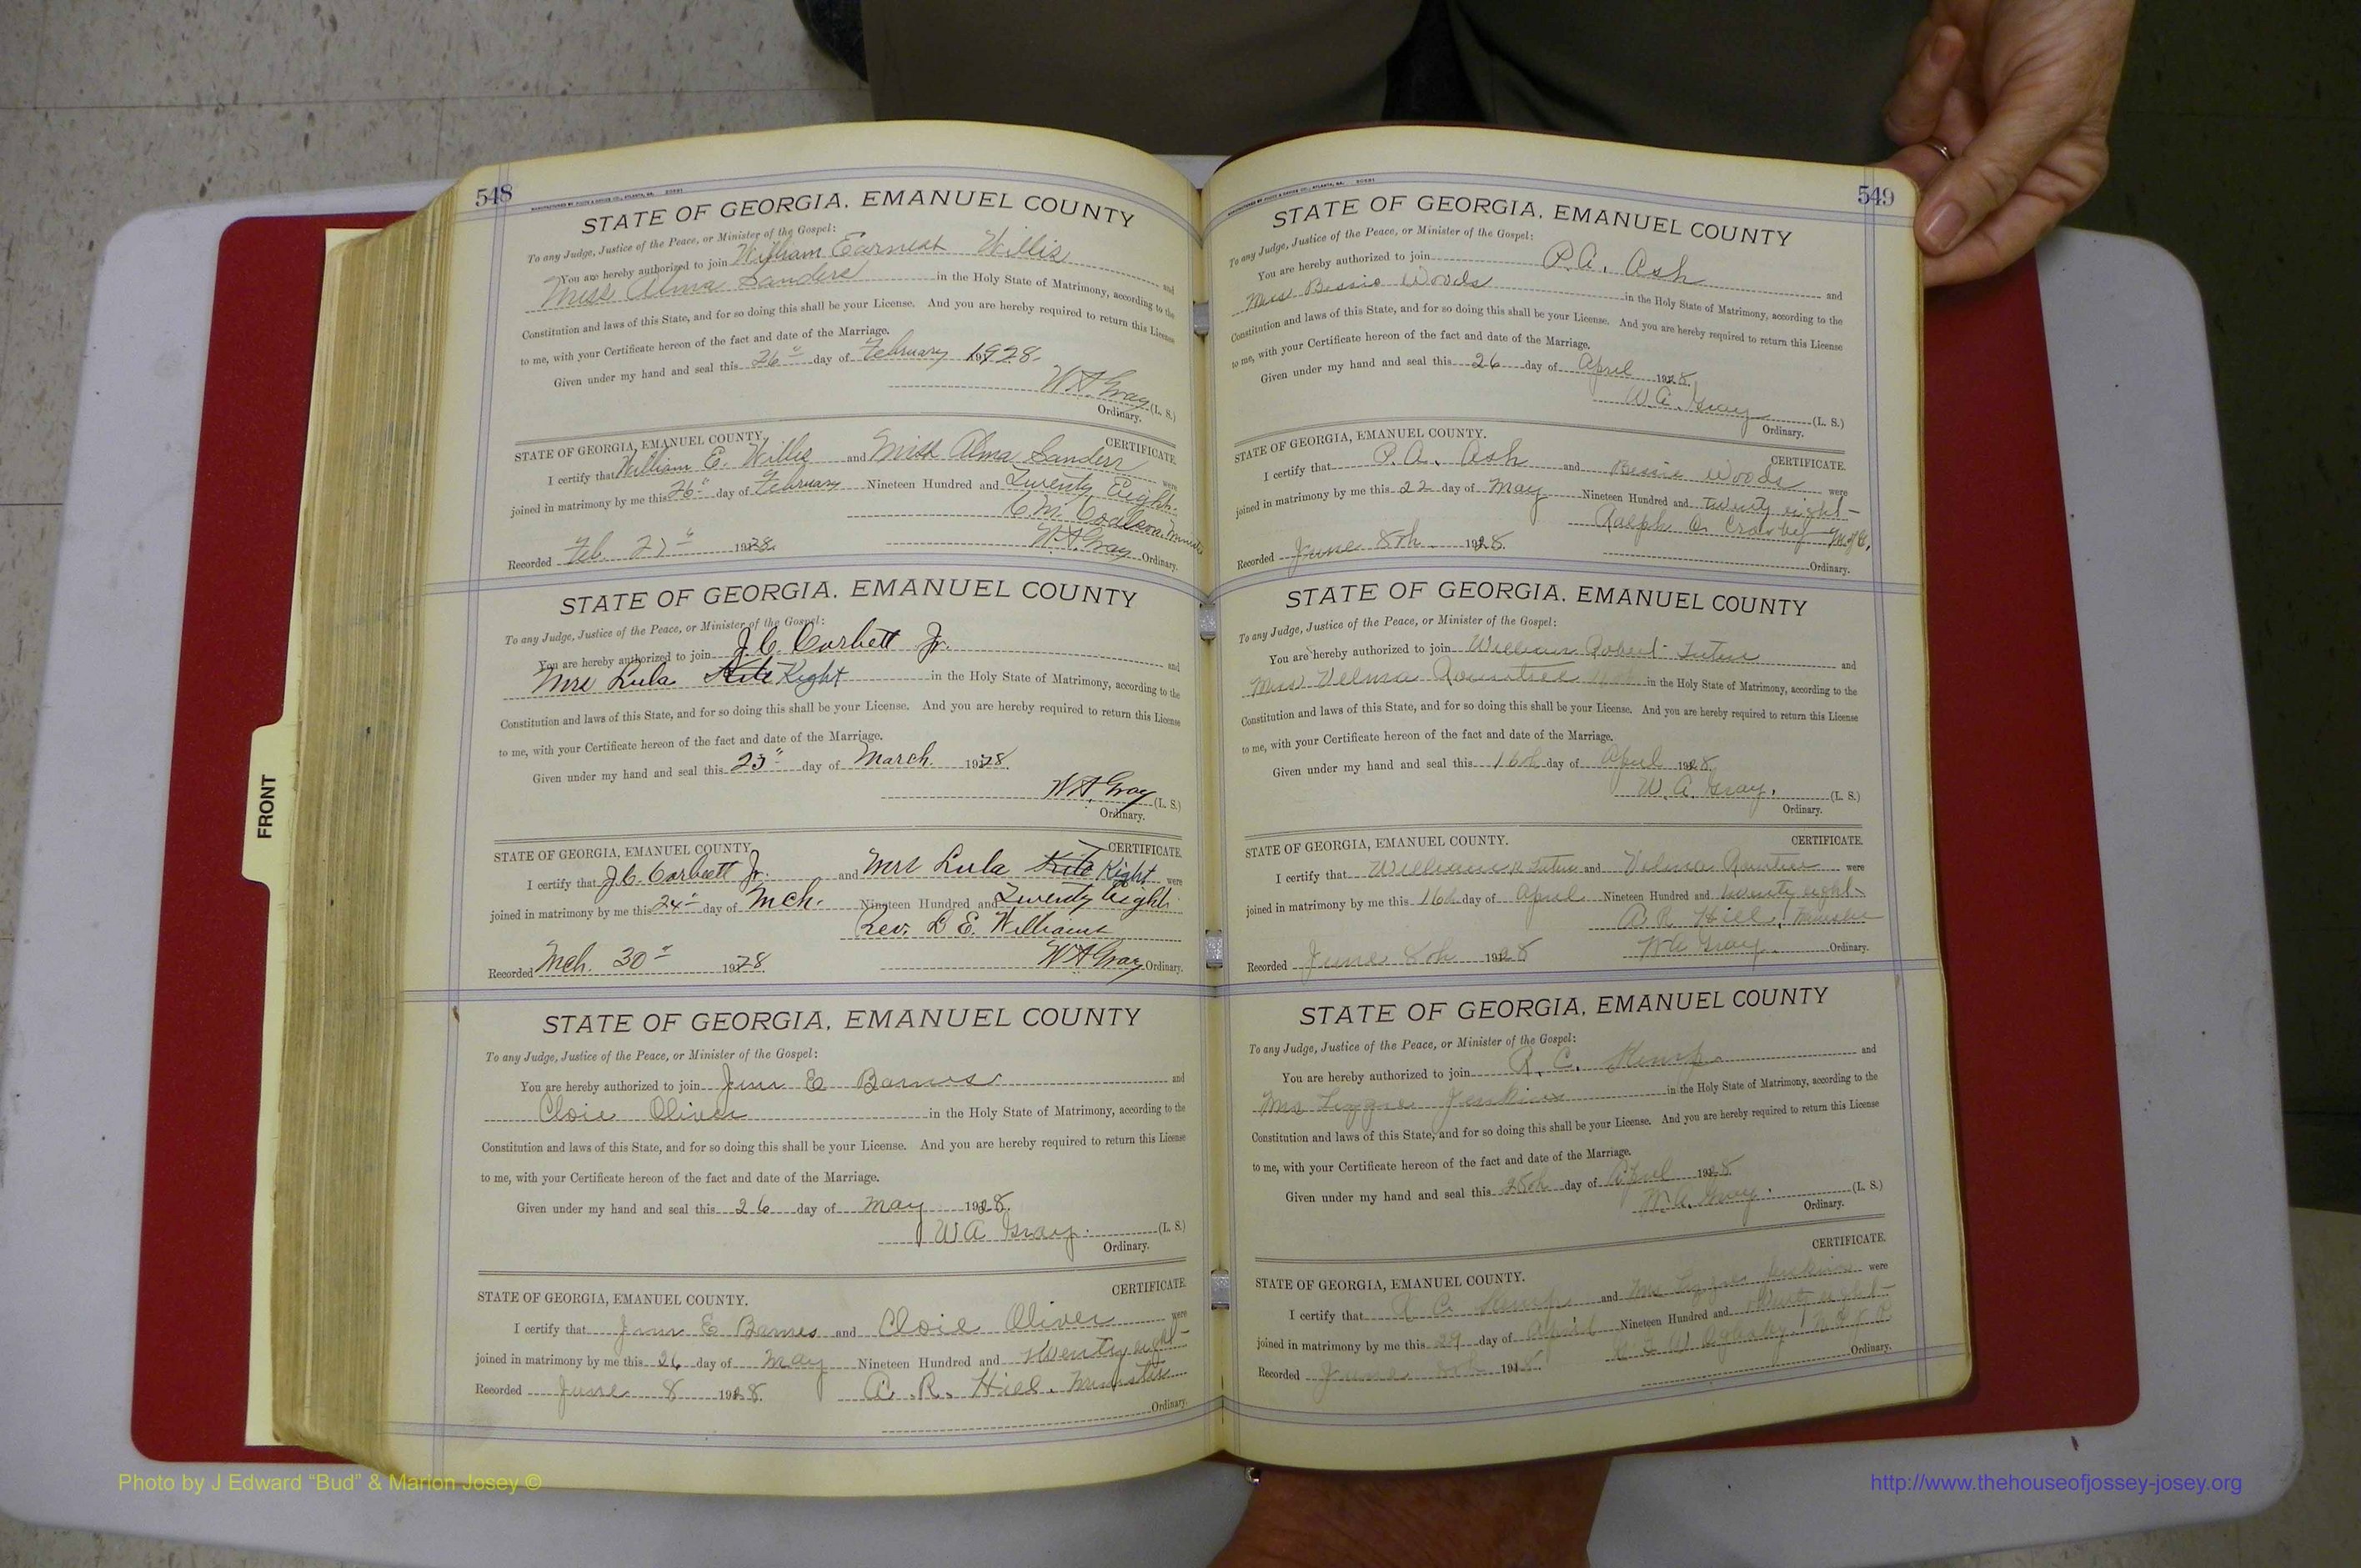 548
STATE OF GEORGIA, EMANUEL COUNTY
To any Judge, Justice of the Peace, or Minister of the Gospel:
You are hereby authorized to join William Earnest Willis and
Miss Alma Sanders in the Holy State of Matrimony, according to the
Constitution and laws of this State, and for so doing this shall be your License. And you are hereby required to return this License
to me, with your Certificate hereon of the fact and date of the Marriage.
Given under my hand and seal this 26" day of February 1928.
W A Gray (L. S.)
Ordinary.
STATE OF GEORGIA, EMANUEL COUNTY. CERTIFICATE.
I certify that William E. Willis and Miss Alma Sanders were
joined in matrimony by me this 26" day of February Nineteen Hundred and Twenty Eight.
C. M. Coalson, Minister
Recorded Feb. 27" 1928. W. A. Gray Ordinary.
STATE OF GEORGIA, EMANUEL COUNTY
To any Judge, Justice of the Peace, or Minister of the Gospel:
You are hereby authorized to join J. C. Corbett Jr. and
Mrs Lula Kite Kight in the Holy State of Matrimony, according to the
Constitution and laws of this State, and for so doing this shall be your License. And you are hereby required to return this License
to me, with your Certificate hereon of the fact and date of the Marriage.
Given under my hand and seal this 23" day of March. 1928.
W A Gray (L. S.)
Ordinary.
STATE OF GEORGIA, EMANUEL COUNTY. CERTIFICATE.
I certify that J. C. Corbett Jr. and Mrs Lula Kite Kight were
joined in matrimony by me this 24" day of Mch. Nineteen Hundred and Twenty Eight.
Rev. D E. Williams
Recorded Mch. 30" 1928. W A Gray Ordinary.
STATE OF GEORGIA, EMANUEL COUNTY
To any Judge, Justice of the Peace, or Minister of the Gospel:
You are hereby authorized to join E Barnes and
Cloie Oliver in the Holy State of Matrimony, according to the
Constitution and laws of this State, and for so doing this shall be your License. And you are hereby required to return this License
to me, with your Certificate hereon of the fact and date of the Marriage.
Given under my hand and seal this 26 day of May 1928.
W A Gray. (L. S.)
Ordinary.
CERTIFICATE.
STATE OF GEORGIA, EMANUEL COUNTY.
I certify that E Barnes and Cloie Oliver were
joined in matrimony by me this 26 day of May Nineteen Hundred and twenty eight
Recorded June 8 1928. A. R. Hill. Minister
Ordinary.
549
STATE OF GEORGIA, EMANUEL COUNTY
To any Judge, Justice of the Peace, or Minister of the Gospel:
You are hereby authorized to join P. A. Ash and
Miss Bessie Woods in the Holy State of Matrimony, according to the
Constitution and laws of this State, and for so doing this shall be your License. And you are hereby required to return this License
to me, with your Certificate hereon of the fact and date of the Marriage.
Given under my hand and seal this 26 day of April 1928.
W. A. Gray (L. S.)
Ordinary.
STATE OF GEORGIA, EMANUEL COUNTY. CERTIFICATE.
I certify that P. A. Ash and Bessie Woods were
joined in matrimony by me this 22 day of May Nineteen Hundred and twenty eight
Ralph O. Crosby M. of G.
Recorded June 8th 1928. Ordinary.
STATE OF GEORGIA, EMANUEL COUNTY
To any Judge, Justice of the Peace, or Minister of the Gospel:
You are hereby authorized to join William Robert and
Miss Velma Rountree in the Holy State of Matrimony, according to the
Constitution and laws of this State, and for so doing this shall be your License. And you are hereby required to return this License
to me, with your Certificate hereon of the fact and date of the Marriage.
Given under my hand and seal this 16th day of April 1928.
W. A. Gray. (L. S.)
Ordinary.
STATE OF GEORGIA, EMANUEL COUNTY. CERTIFICATE.
I certify that William R and Velma Rountree were
joined in matrimony by me this 16th day of April Nineteen Hundred and twenty eight
A R Hill, Minister
Recorded June 8th 1928 W A Gray. Ordinary.
STATE OF GEORGIA, EMANUEL COUNTY
To any Judge, Justice of the Peace, or Minister of the Gospel:
You are hereby authorized to join R. C. Kemp and
Mrs Lizzie Jenkins in the Holy State of Matrimony, according to the
Constitution and laws of this State, and for so doing this shall be your License. And you are hereby required to return this License
to me, with your Certificate hereon of the fact and date of the Marriage.
Given under my hand and seal this 28th day of April 1928.
W. A. Gray. (L. S.)
Ordinary.
CERTIFICATE.
STATE OF GEORGIA, EMANUEL COUNTY.
I certify that R C Kemp and Mrs Lizzie Jenkins were
joined in matrimony by me this 29 day of April Nineteen Hundred and twenty eight
Recorded June 8th 1928.
Ordinary.
FRONT
Photo by J Edward “Bud” & Marion Josey ©
http://www.thehouseofjossey-josey.org